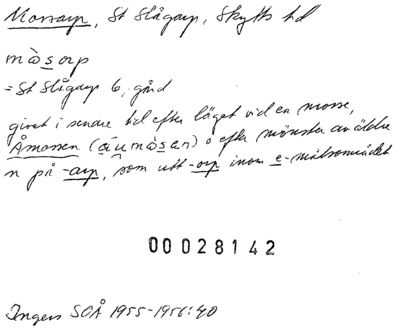 Mossarp, St Slågarp, Skytts hd
mòsorp
= St Slågarp 6, gård
givet i senare tid efter läget vid en mosse,
Åmossen (áumòsen) o efter mönster av äldre
n på -arp, som utt -orp inom e-målsområdet
00028142
Ingers SOÅ 1955-1956:40